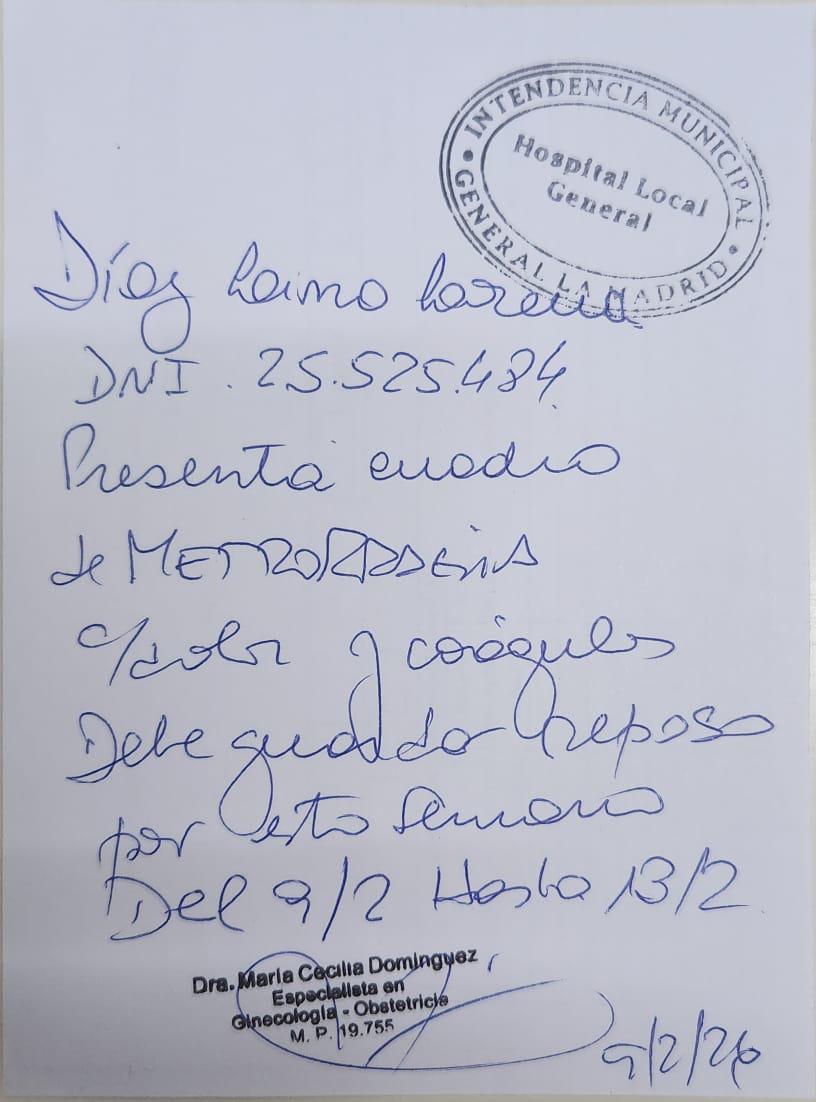 INTENDENCIA MUNICIPAL
Hospital Local
General
GENERAL LA MADRID
Díaz Laino Lorena
DNI. 25.525.484
Presenta cuadro
de METRORRAGIA
c/dolor y coágulos
Debe guardar reposo
por esta semana
Del 9/2 Hasta 13/2
Dra. María Cecilia Dominguez
Especialista en
Ginecología - Obstetricia
M. P. 19.755
9/2/26